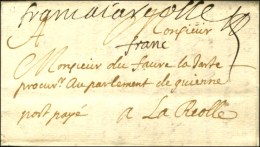 franc a Larolle
A Monsieur
franc
Monsieur du faure la Jarte
procur. Au parlement de guienne
port payé a La Reolle